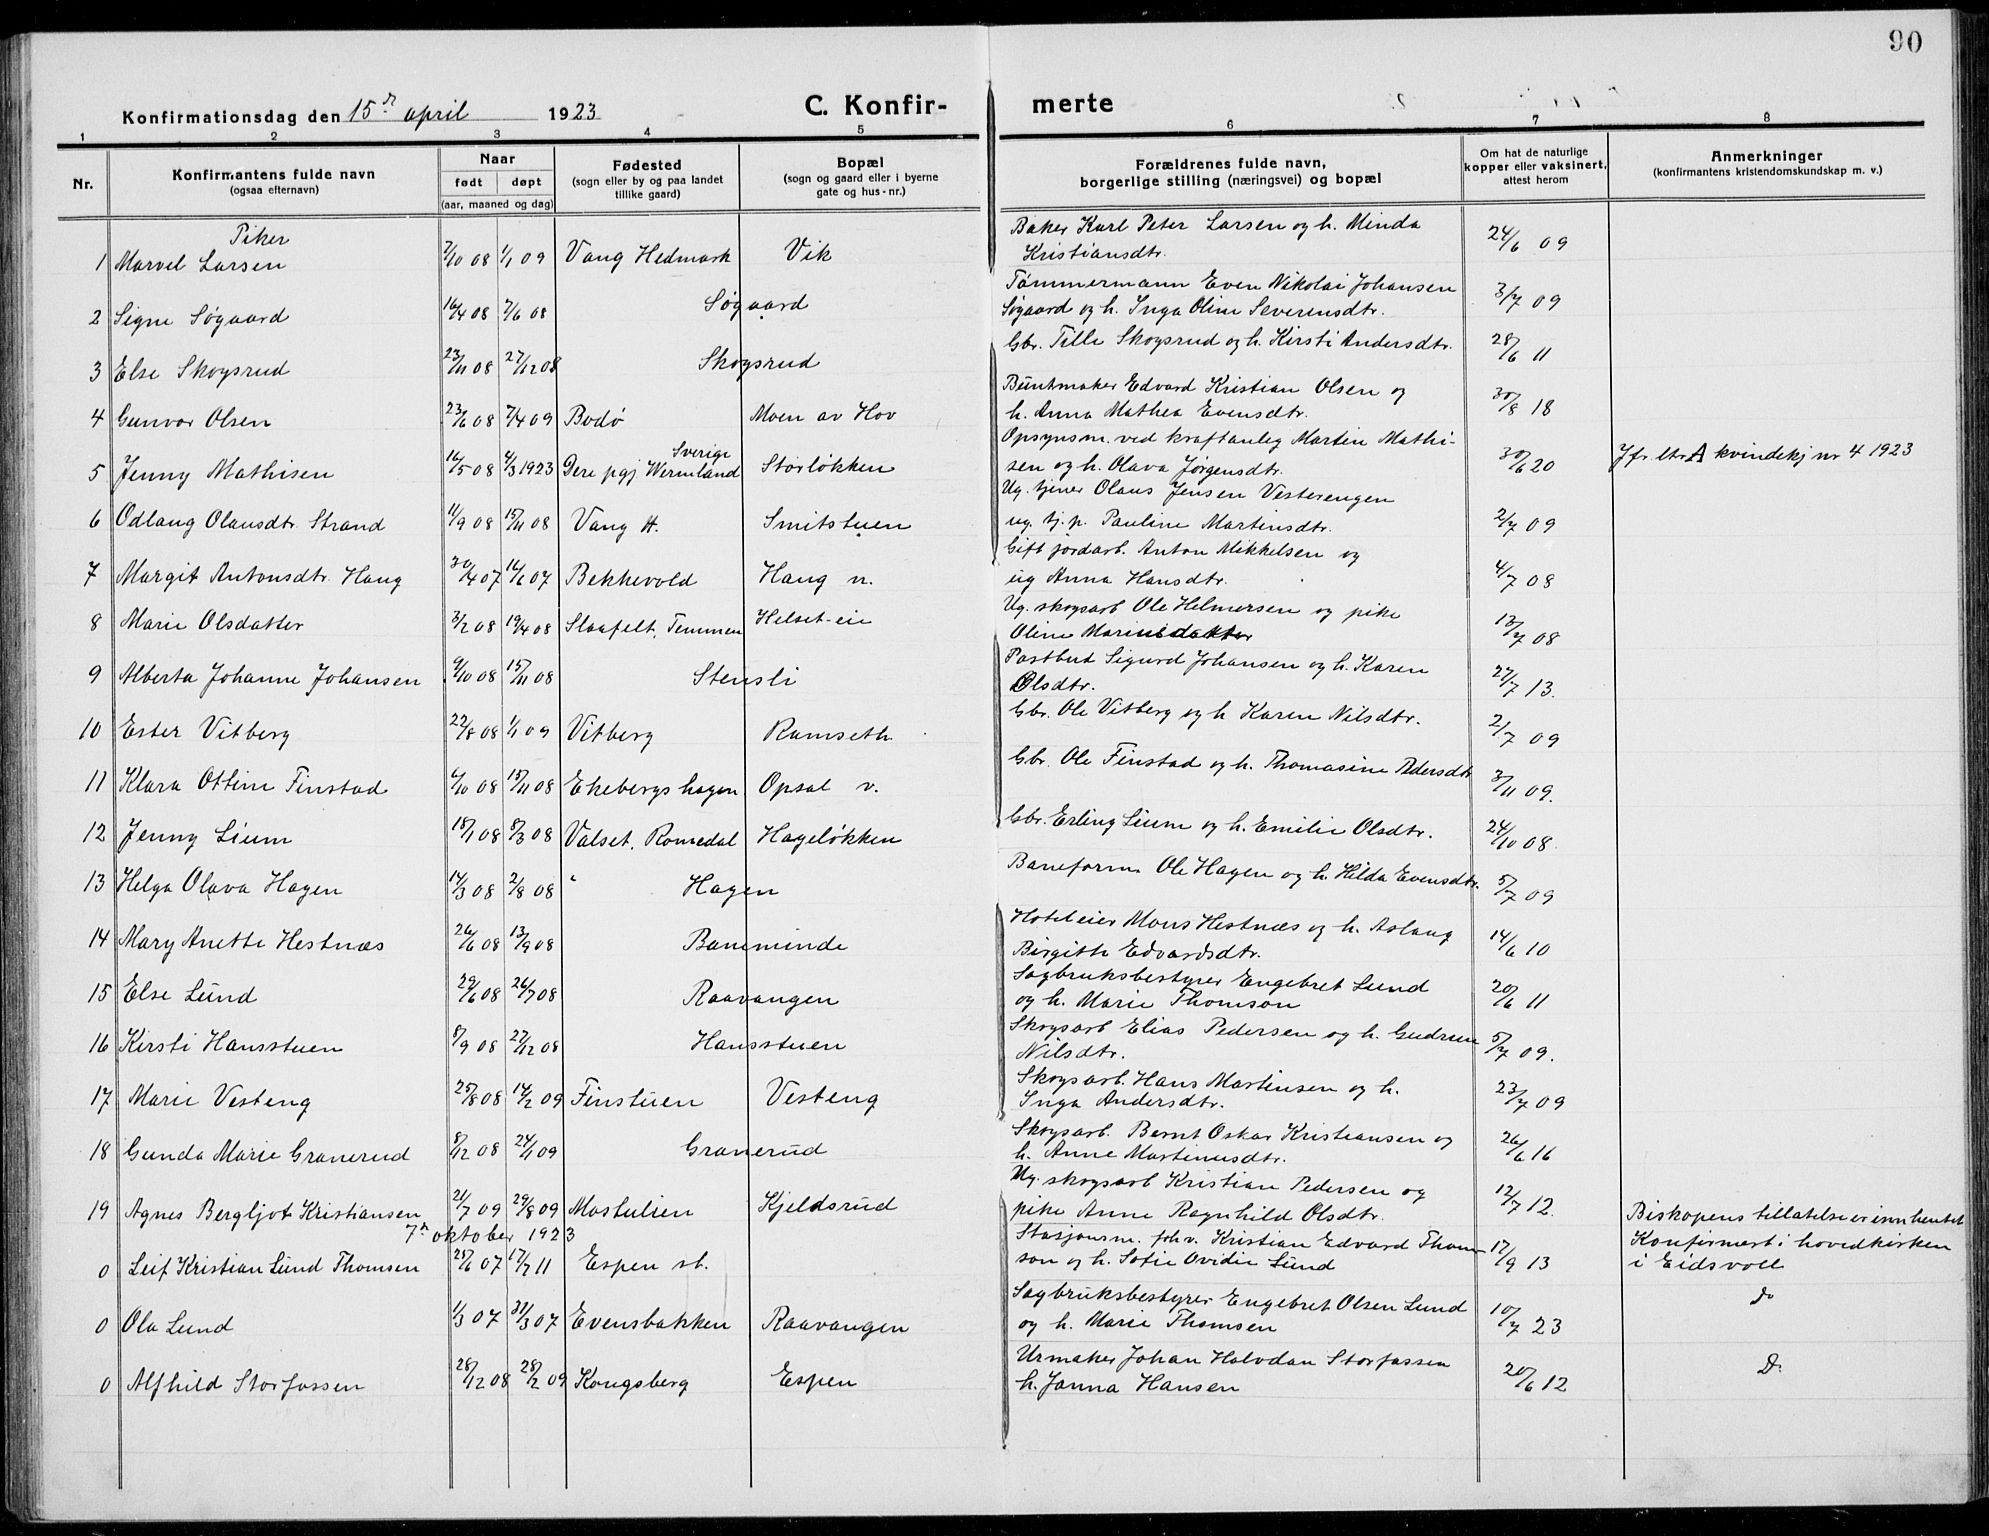 90
Konfirmationsdag den 15de april 1923 C. Konfir- merte
1 2 3 4 5 6 7 8
Nr. Konfirmantens fulde navn (ogsaa efternavn) Naar født døpt (aar, maaned og dag) Fødested (sogn eller by og paa landet tillike gaard) Bopæl (sogn og gaard eller i byerne gate og hus-nr.) Forældrenes fulde navn, borgerlige stilling (næringsvei) og bopæl Om hat de naturlige kopper eller vaksinert, attest herom Anmerkninger (konfirmantens kristendomskundskap m. v.)
Piker
1 Marvel Larsen 7/10 08 1/1 09 Vang Hedmark Vik Baker Karl Peter Larsen og h. Minda Kristiansdtr. 24/6 09
2 Signe Søgaard 16/4 08 7/6 08 Søgaard Tømmermann Even Nikolai Johansen Søgaard og h. Inga Oline Severensdtr. 3/7 09
3 Else Skogsrud 23/11 08 27/12 08 Skogsrud Gbr. Tille Skogsrud og h. Kirsti Andersdtr. 28/6 11
4 Gunvor Olsen 23/6 08 7/4 09 Bodø Moen av Hov Buntmaker Edvard Kristian Olsen og h. Anna Mathea Evensdtr. 30/8 18
5 Jenny Mathisen 16/5 08 4/3 1923 Dere pgj Wermland Sverige Storløkken Opsynsm. ved kraftanleg Martin Mathisen og h. Olava Jørgensdtr. 30/6 20 Jfr. ltr. A kvindekj nr 4 1923
6 Odlaug Olausdtr. Strand 11/9 08 15/11 08 Vang H. Smitstuen Ug. tjener Olaus Jensen Vesterengen ug. tj. p. Pauline Martinsdtr. 2/7 09
7 Margit Antonsdtr. Haug 30/4 07 16/6 07 Bekkevold Haug n. Gift jordarb. Anton Mikkelsen og ug Anna Hansdtr. 4/7 08
8 Marie Olsdatter 3/2 08 19/4 08 Slaafelt, Temmen Helset-eie Ug. skogsarb Ole Helmersen og pike Oline Marinsdatter 13/7 08
9 Alberta Johanne Johansen 9/10 08 15/11 08 Stensli Postbud Sigurd Johansen og h. Karen Olsdtr. 27/7 13.
10 Ester Vitberg 22/8 08 1/1 09 Vitberg Ramseth. Gbr. Ole Vitberg og h Karen Nilsdtr. 2/7 09
11 Klara Ottine Finstad 6/10 08 15/11 08 Ekebergshagen Opsal v. Gbr. Ole Finstad og h. Thomasine Pedersdtr 3/11 09.
12 Jenny Lium 18/1 08 8/3 08 Valset, Romedal Hageløkken Gbr. Erling Lium og h. Emilie Olsdtr. 24/10 08.
13 Helga Olava Hagen 14/3 08 2/8 08 " Hagen Baneform. Ole Hagen og h. Hilda Evensdtr. 5/7 09
14 Mary Anette Hestnæs 26/6 08 13/9 08 Baneminde Hoteleier Mons Hestnæs og h. Aslaug Birgitte Edvardsdtr. 14/6 10
15 Else Lund 29/6 08 26/7 08 Raavangen Sagbruksbestyrer Engebret Lund og h. Marie Thomson 20/6 11
16 Kirsti Hansstuen 8/9 08 27/12 08 Hansstuen Skogsarb Elias Pedersen og h. Gudrun Nilsdtr. 5/7 09.
17 Marie Vesteng 25/8 08 14/2 09 Finstuen Vesteng Skogsarb. Hans Martinsen og h. Inga Andersdtr. 23/7 09
18 Gunda Marie Granerud 8/12 08 24/1 09 Granerud Skogsarb. Bernt Oskar Kristiansen og h. Anne Martinusdtr. 26/6 16
19 Agnes Bergljot Kristiansen 21/7 09 29/8 09 Mostulien Kjeldsrud Ug. skogsarb Kristian Pedersen og pike Anne Ragnhild Olsdtr. 12/7 12.
7de oktober 1923
0 Leif Kristian Lund Thomsen 25/6 07 17/7 11 Espen st. Stasjonsm. Joh v. Kristian Edvard Thomson og h. Sofie Ovidie Lund 17/9 13 Biskopens tillatelse er innhentet Konfirmert i hovedkirken i Eidsvoll
0 Ola Lund 1/3 07 31/3 07 Evensbakken Raavangen Sagbruksbestyrer Engebret Olsen Lund og h. Marie Thomsen 10/7 23 Do
0 Alfhild Storfossen 28/12 08 28/2 09 Kongsberg Espen Urmaker Johan Halvdan Storfossen h. Janna Hansen 20/6 12 Do